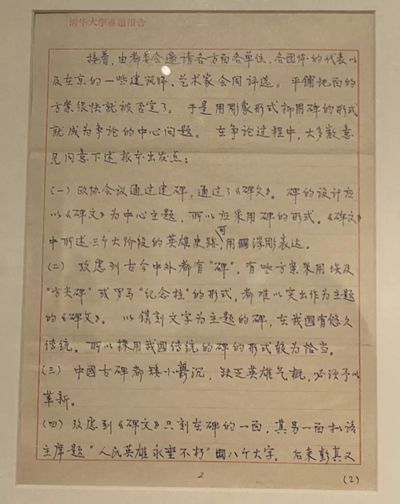 清华大学专题报告
接着，由都委会邀请各方面各单位、各团体的代表以
及在京的一些建筑师、艺术家会同评选。 平铺地面的
方案很快就被否定了。 于是用雕象形式抑用碑的形式
就成为争论的中心问题。 在争论过程中，大多数意
见同意下述根本出发点：
(一) 政协会议通过建碑，通过了《碑文》。 碑的设计应
以《碑文》为中心主题，所以应采用碑的形式。《碑文》
中所述三个大阶段的英雄史迹，可用浮雕表达。
(二) 考虑到古今中外都有“碑”，有些方案采用埃及
“方尖碑”或罗马“纪念柱”的形式，都难以突出作为主题
的《碑文》。 以镌刻文字为主题的碑，在我国有悠久
传统。 所以採用我國传统的碑的形式较为恰当。
(三) 中國古碑都矮小鬱沉，缺乏英雄气概，必须予以
革新。
(四) 考虑到《碑文》只刻在碑的一面，其另一面拟请
主席题“人民英雄永垂不朽”八个大字。 后来彭真又
2
(2)